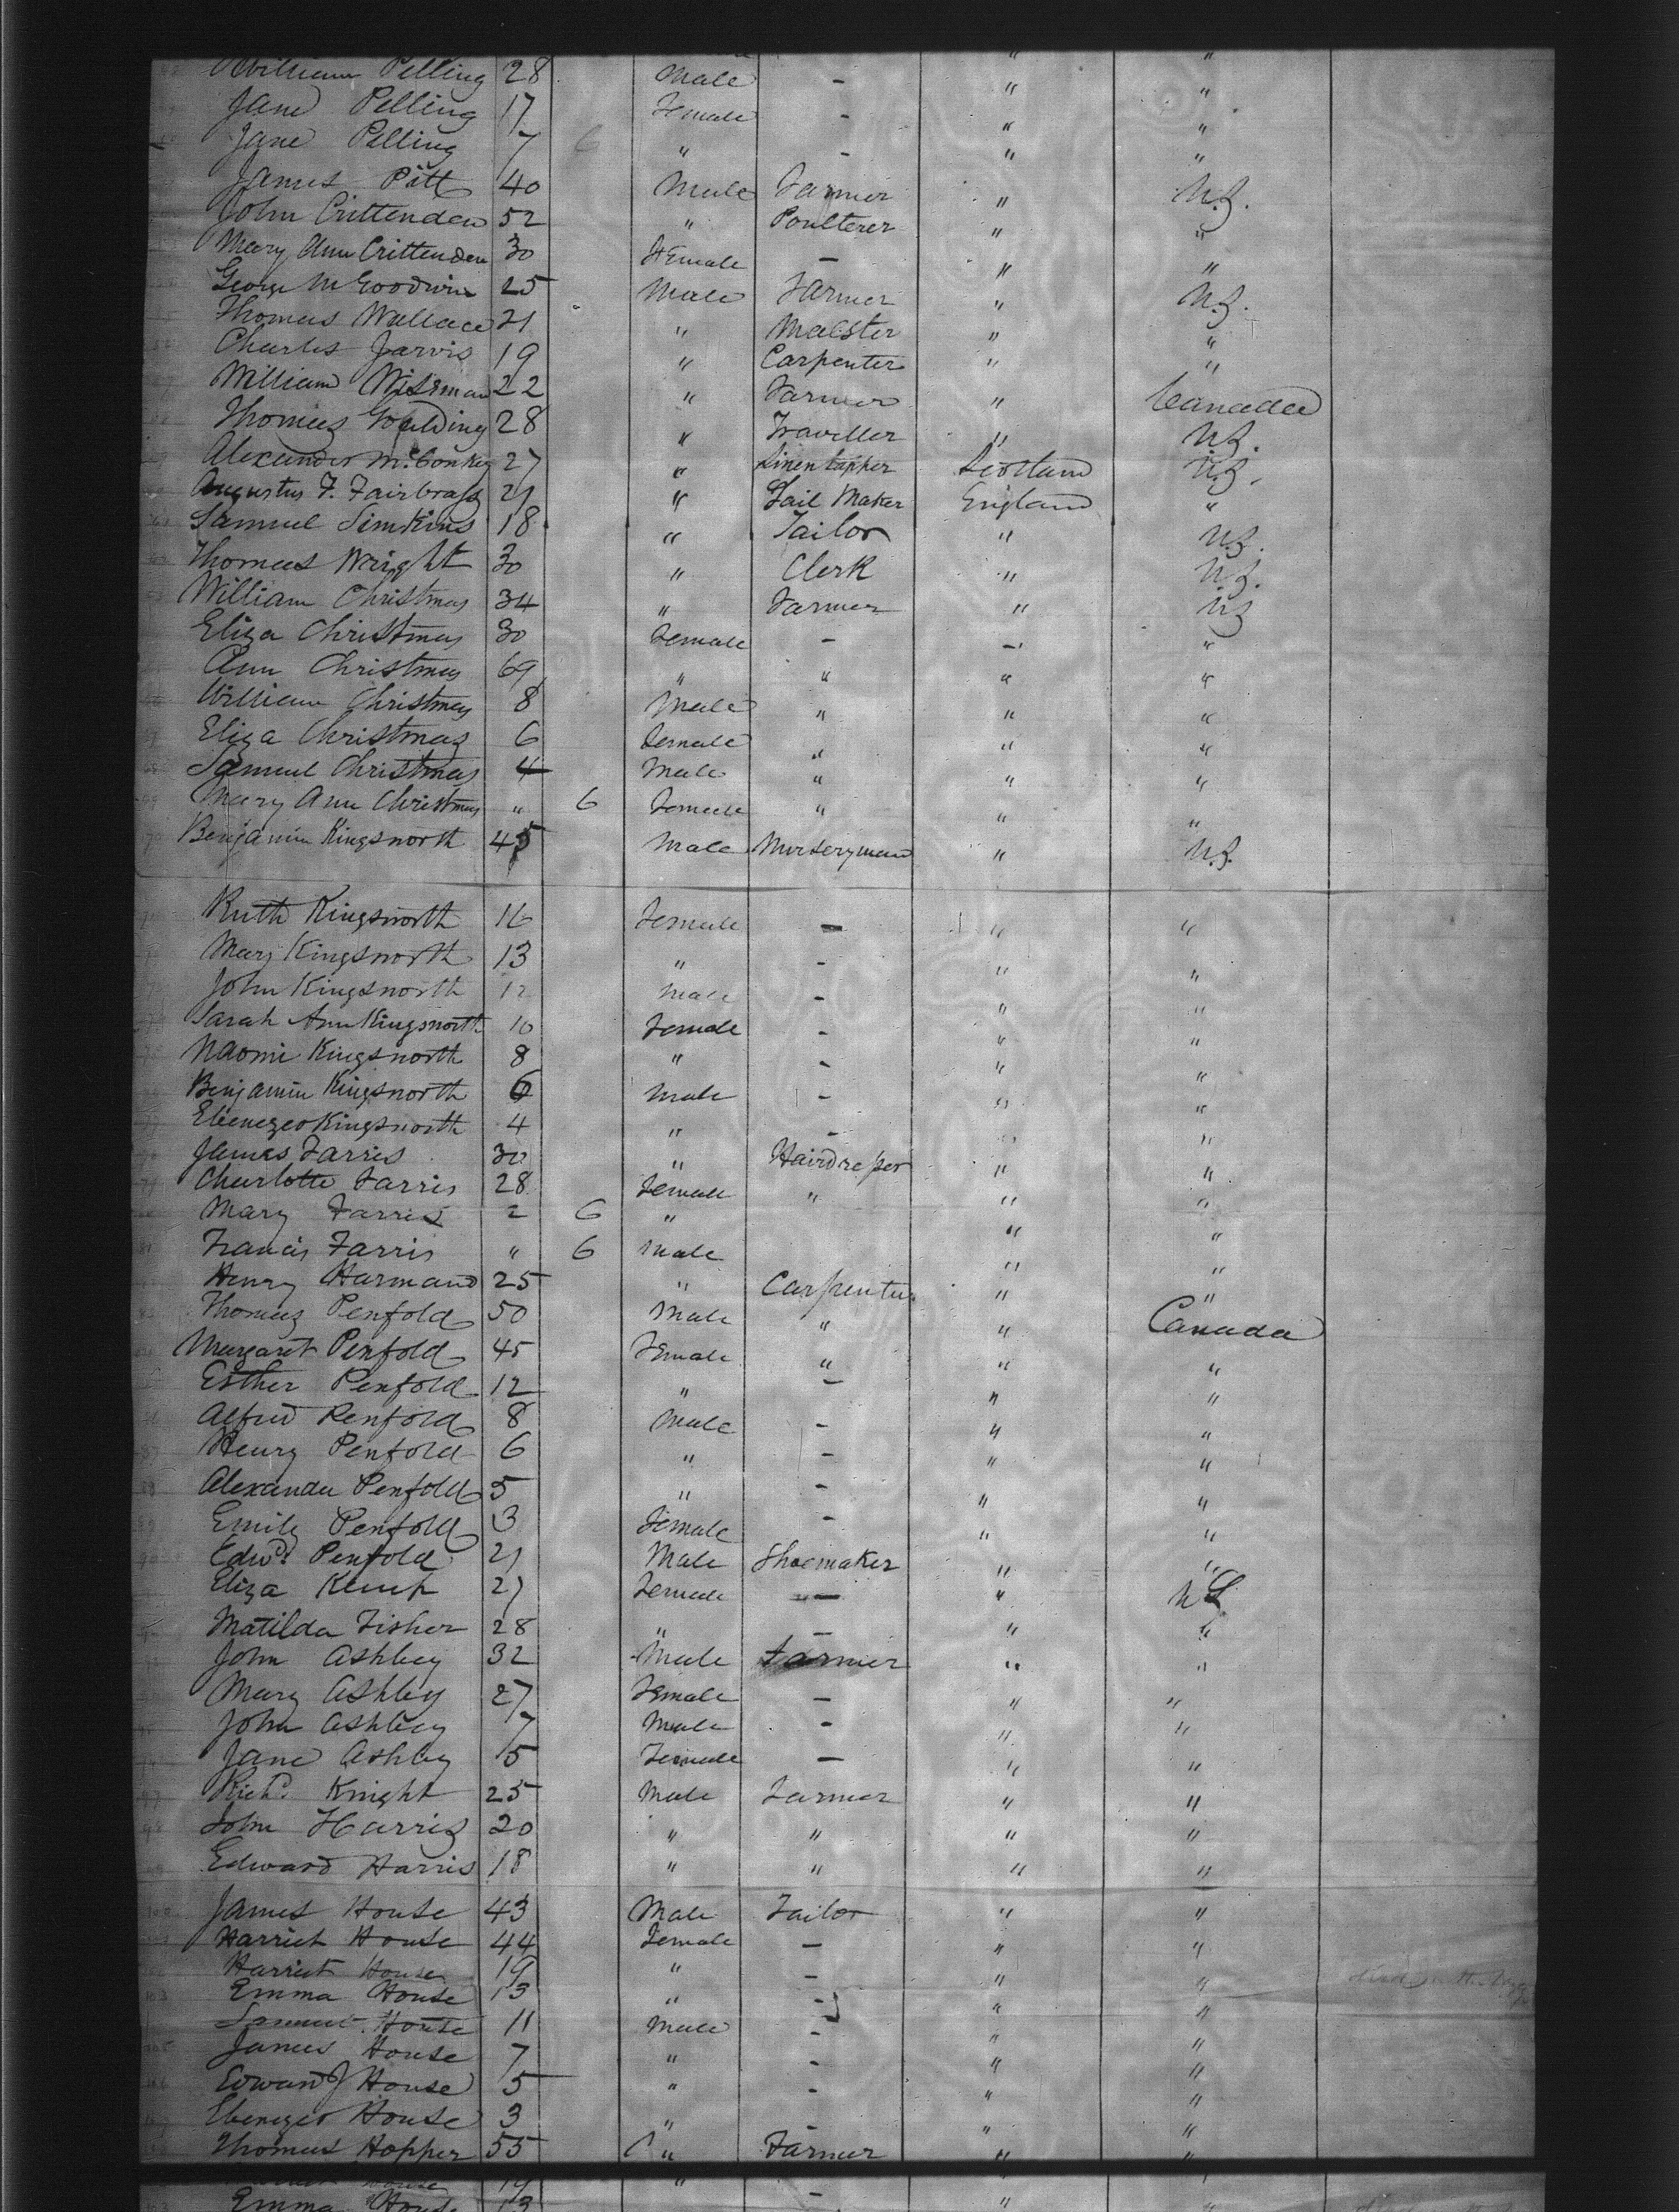 William Pelling 28 Male - " "
Jane Pelling 17 Female - " "
Jane Pelling 7 6 " - " "
James Pitt 40 Male Farmer " U.S.
John Crittenden 52 " Poulterer " "
Mary Ann Crittenden 30 Female - " "
George M Goodwin 25 Male Farmer " U.S.
Thomas Wallace 21 " Malster " "
Charles Jarvis 19 " Carpenter " "
William Wiseman 22 " Farmer " Canada
Thomas Goulding 28 " Traveller " U.S.
Alexander McConkey 27 " Linen Lapper Scotland U.S.
Augustus F. Fairbrass 21 " Sail Maker England "
Samuel Simkins 18 " Tailor " U.S.
Thomas Wright 30 " Clerk " U.S.
William Christmas 34 " Farmer " US
Eliza Christmas 30 Female - - "
Ann Christmas 69 " " " "
William Christmas 8 Male " " "
Eliza Christmas 6 Female " " "
Samuel Christmas 4 Male " " "
Mary Ann Christmas " 6 Female " " "
Benjamin Kingsnorth 45 Male Nurseryman " U.S.
Ruth Kingsnorth 16 Female - " "
Mary Kingsnorth 13 " - " "
John Kingsnorth 12 Male - " "
Sarah Ann Kingsnorth 10 Female - " "
Naomi Kingsnorth 8 " - " "
Benjamin Kingsnorth 6 Male - " "
Ebenezer Kingsnorth 4 " - " "
James Farris 30 " Hairdresser " "
Charlotte Farris 28 Female " " "
Mary Farris 2 6 " " "
Francis Farris " 6 Male " "
Henry Harmand 25 " Carpenter " "
Thomas Penfold 50 Male " " Canada
Margaret Penfold 45 Female " " "
Esther Penfold 12 " - " "
Alfred Penfold 8 Male - " "
Henry Penfold 6 " - " "
Alexander Penfold 5 " - " "
Emily Penfold 3 Female - " "
Edwd. Penfold 21 Male Shoemaker " "
Eliza Kemp 27 Female - " US
Matilda Fisher 28 " - " "
John Ashbey 32 Male Farmer " "
Mary Ashbey 27 Female - " "
John Ashbey 7 Male - " "
Jane Ashbey 5 Female - " "
Richd. Knight 25 Male Farmer " "
John Harris 20 " " " "
Edward Harris 18 " " " "
James House 43 Male Tailor " "
Harriet House 44 Female - " "
Harriet House 19 " - " "
Emma House 13 " - " "
Samuel House 11 Male - " "
James House 7 " - " "
Edward J House 5 " - " "
Ebenezer House 3 " - " "
Thomas Hopper 55 " Farmer " "
House 19 "
Emma House 13 - " "